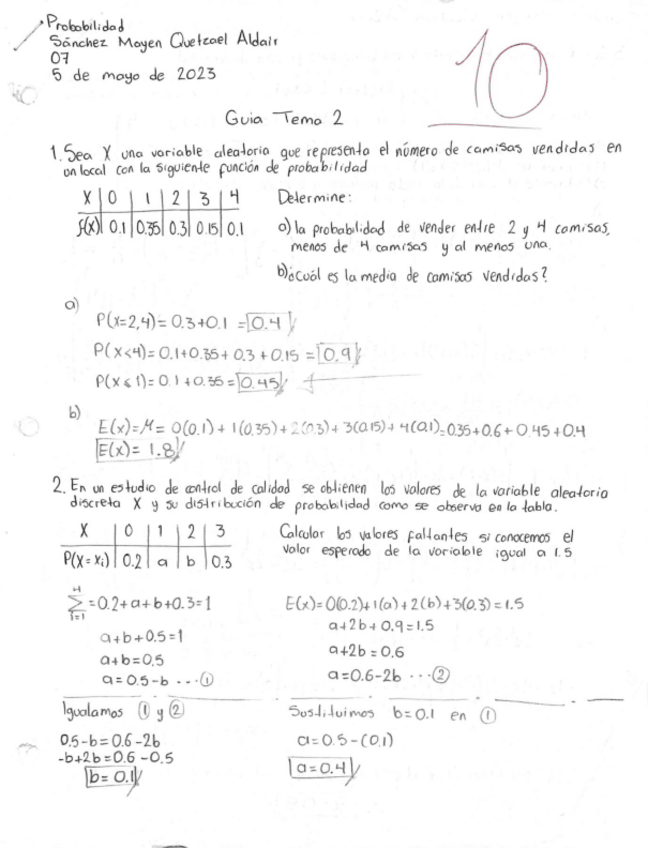 Probabilidad
Sánchez Mayen Quetzael Aldair
07
5 de mayo de 2023
10
Guia Tema 2
1. Sea X una variable aleatoria que representa el número de camisas vendidas en
un local con la siguiente función de probabilidad
X | 0 | 1 | 2 | 3 | 4
f(x) | 0.1 | 0.35 | 0.3 | 0.15 | 0.1
Determine:
a) la probabilidad de vender entre 2 y 4 camisas,
menos de 4 camisas y al menos una.
b) ¿cuál es la media de camisas vendidas?
a)
P(x=2,4) = 0.3+0.1 = 0.4
P(x<4) = 0.1+0.35+0.3+0.15 = 0.9
P(x≤1) = 0.1+0.35 = 0.45
b)
E(x)=M= 0(0.1) + 1(0.35)+2(0.3)+3(0.15)+4(0.1)=0.35+0.6+0.45+0.4
E(x)= 1.8
2. En un estudio de control de calidad se obtienen los valores de la variable aleatoria
discreta X y su distribución de probabilidad como se observa en la tabla.
X | 0 | 1 | 2 | 3
P(X=xi) | 0.2 | a | b | 0.3
Calcular los valores faltantes si conocemos el
valor esperado de la variable igual a 1.5
4
Σ = 0.2+a+b+0.3=1
i=1
a+b+0.5=1
a+b=0.5
a=0.5-b ... ①
E(x)=0(0.2)+1(a)+2(b)+3(0.3)=1.5
a+2b+0.9=1.5
a+2b=0.6
a=0.6-2b ... ②
Igualamos ① y ②
0.5-b=0.6-2b
-b+2b=0.6-0.5
b=0.1
Sustituimos b=0.1 en ①
a=0.5-(0.1)
a=0.4